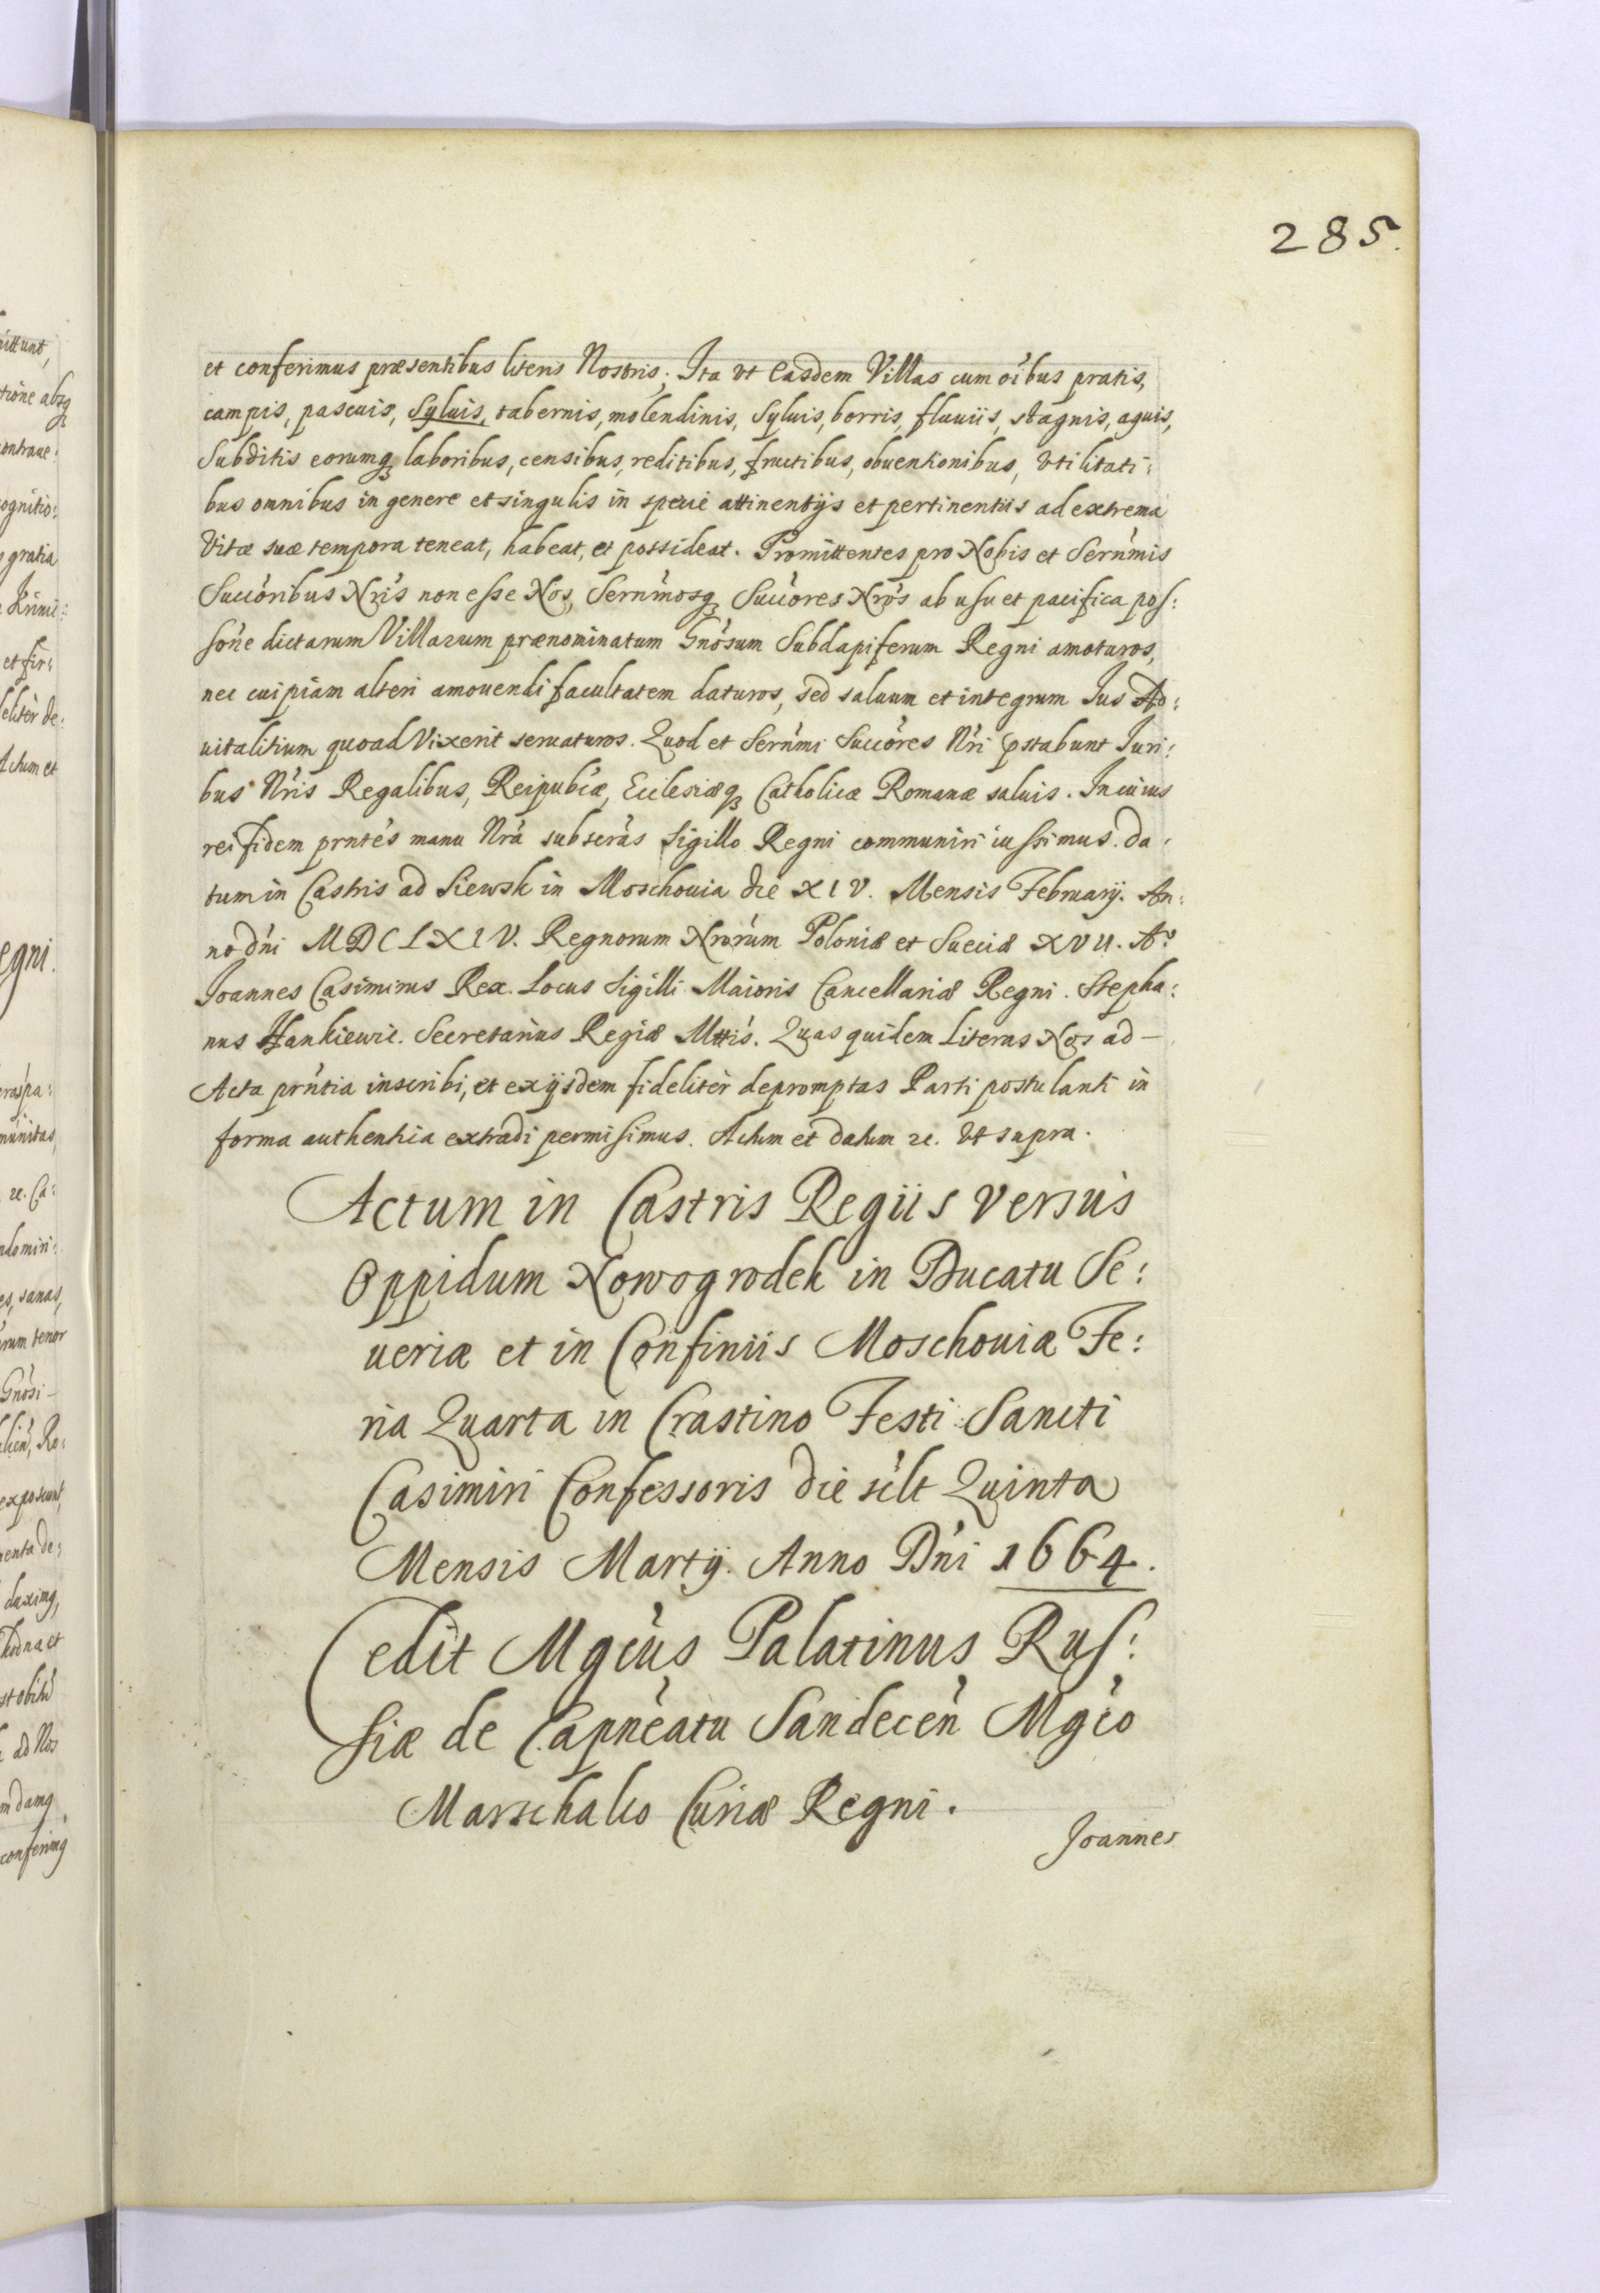 285.
et conferimus præsentibus literis Nostris. Ita vt easdem Villas cum oibus pratis,
campis, pascuis, Syluis, tabernis, molendinis, Syluis, borris, fluuiis, stagnis, aquis,
Subditis eorumq3 laboribus, censibus, reditibus, fructibus, obuentionibus, vtilitati:
bus omnibus in genere et singulis in specie attinentijs et pertinentiis ad extrema
Vitæ suæ tempora teneat, habeat, et possideat. Promittentes pro Nobis et Sernmis
Succoribus Nris non esse Nos, Sernmosq3 Succores Nros ab usu et pacifica pos:
sone dictarum Villarum prænominatum Gnosum Subdapiferum Regni amoturos,
nec cuipiam alteri amouendi facultatem daturos, sed saluum et integrum Ius Ad:
uitalitium quoad Vixerit seruaturos. Quod et Sernmi Succores Nri pstabunt Iuri:
bus Nris Regalibus, Reipubcæ, Ecclesiæq3 Catholicæ Romanæ saluis. In cuius
rei fidem prntes manu Nra subscras Sigillo Regni communiri iussimus. Da:
tum in Castris ad Siewsk in Moschouia die XIV. Mensis February. An:
no dni MDCLXIV. Regnorum Nrorum Poloniæ et Sueciæ XVII. Ao
Joannes Casimirus Rex. Locus Sigilli Maioris Cancellariæ Regni. Stepha:
nus Hankiewic. Secretarius Regiæ Mttis. Quas quidem Literas Nos ad –
Acta prntia inscribi, et ex ijsdem fideliter depromptas Parti postulanti in
forma authentica extradi permisimus. Actum et datum 2c. Vt supra.
Actum in Castris Regiis versus
Oppidum Nowogrodek in Ducatu Se:
ueriæ et in Confiniis Moschouiæ Fe:
ria Quarta in Crastino Festi Sancti
Casimiri Confessoris die sclt Quinta
Mensis Martij. Anno Dni 1664.
Cedit Mgcus Palatinus Rus:
siæ de Capneatu Sandecen Mgco
Marschalco Curiæ Regni.
Joannes